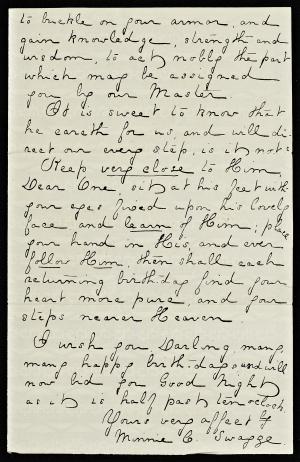 to buckle on your armor, and
gain knowledge, strength and
wisdom, to act nobly the part
which may be assigned
you by our Master.
It is sweet to know that
he careth for us, and will di-
rect our every step, is it not?
Keep very close to Him,
Dear One, sit at his feet with
your eyes fixed upon his lovely
face and learn of Him; place
your hand in His, and ever
follow Him, then shall each
returning birth-day find your
heart more pure, and your
steps nearer Heaven
I wish you, Darling, many,
many happy birth-days and will
now bid you Good Night
as it is half past ten oclock.
Yours very affect'ly
Minnie C. Swagge.